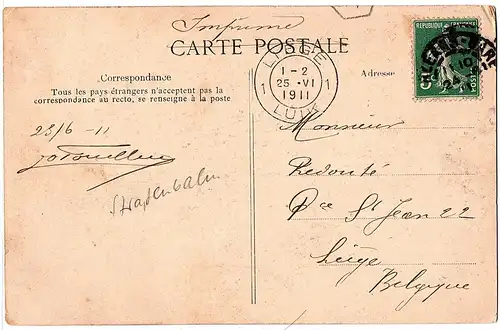 Imprimé
CARTE POSTALE
Correspondance
Tous les pays étrangers n'acceptent pas la
correspondance au recto, se renseigne à la poste
Adresse
REPUBLIQUE FRANÇAISE
1-2
25 VI
1911
1 1
LUIK
23/6 - 11
Strassenbahn
Monsieur
Redouté
Pce St Jean 22
Liège
Belgique